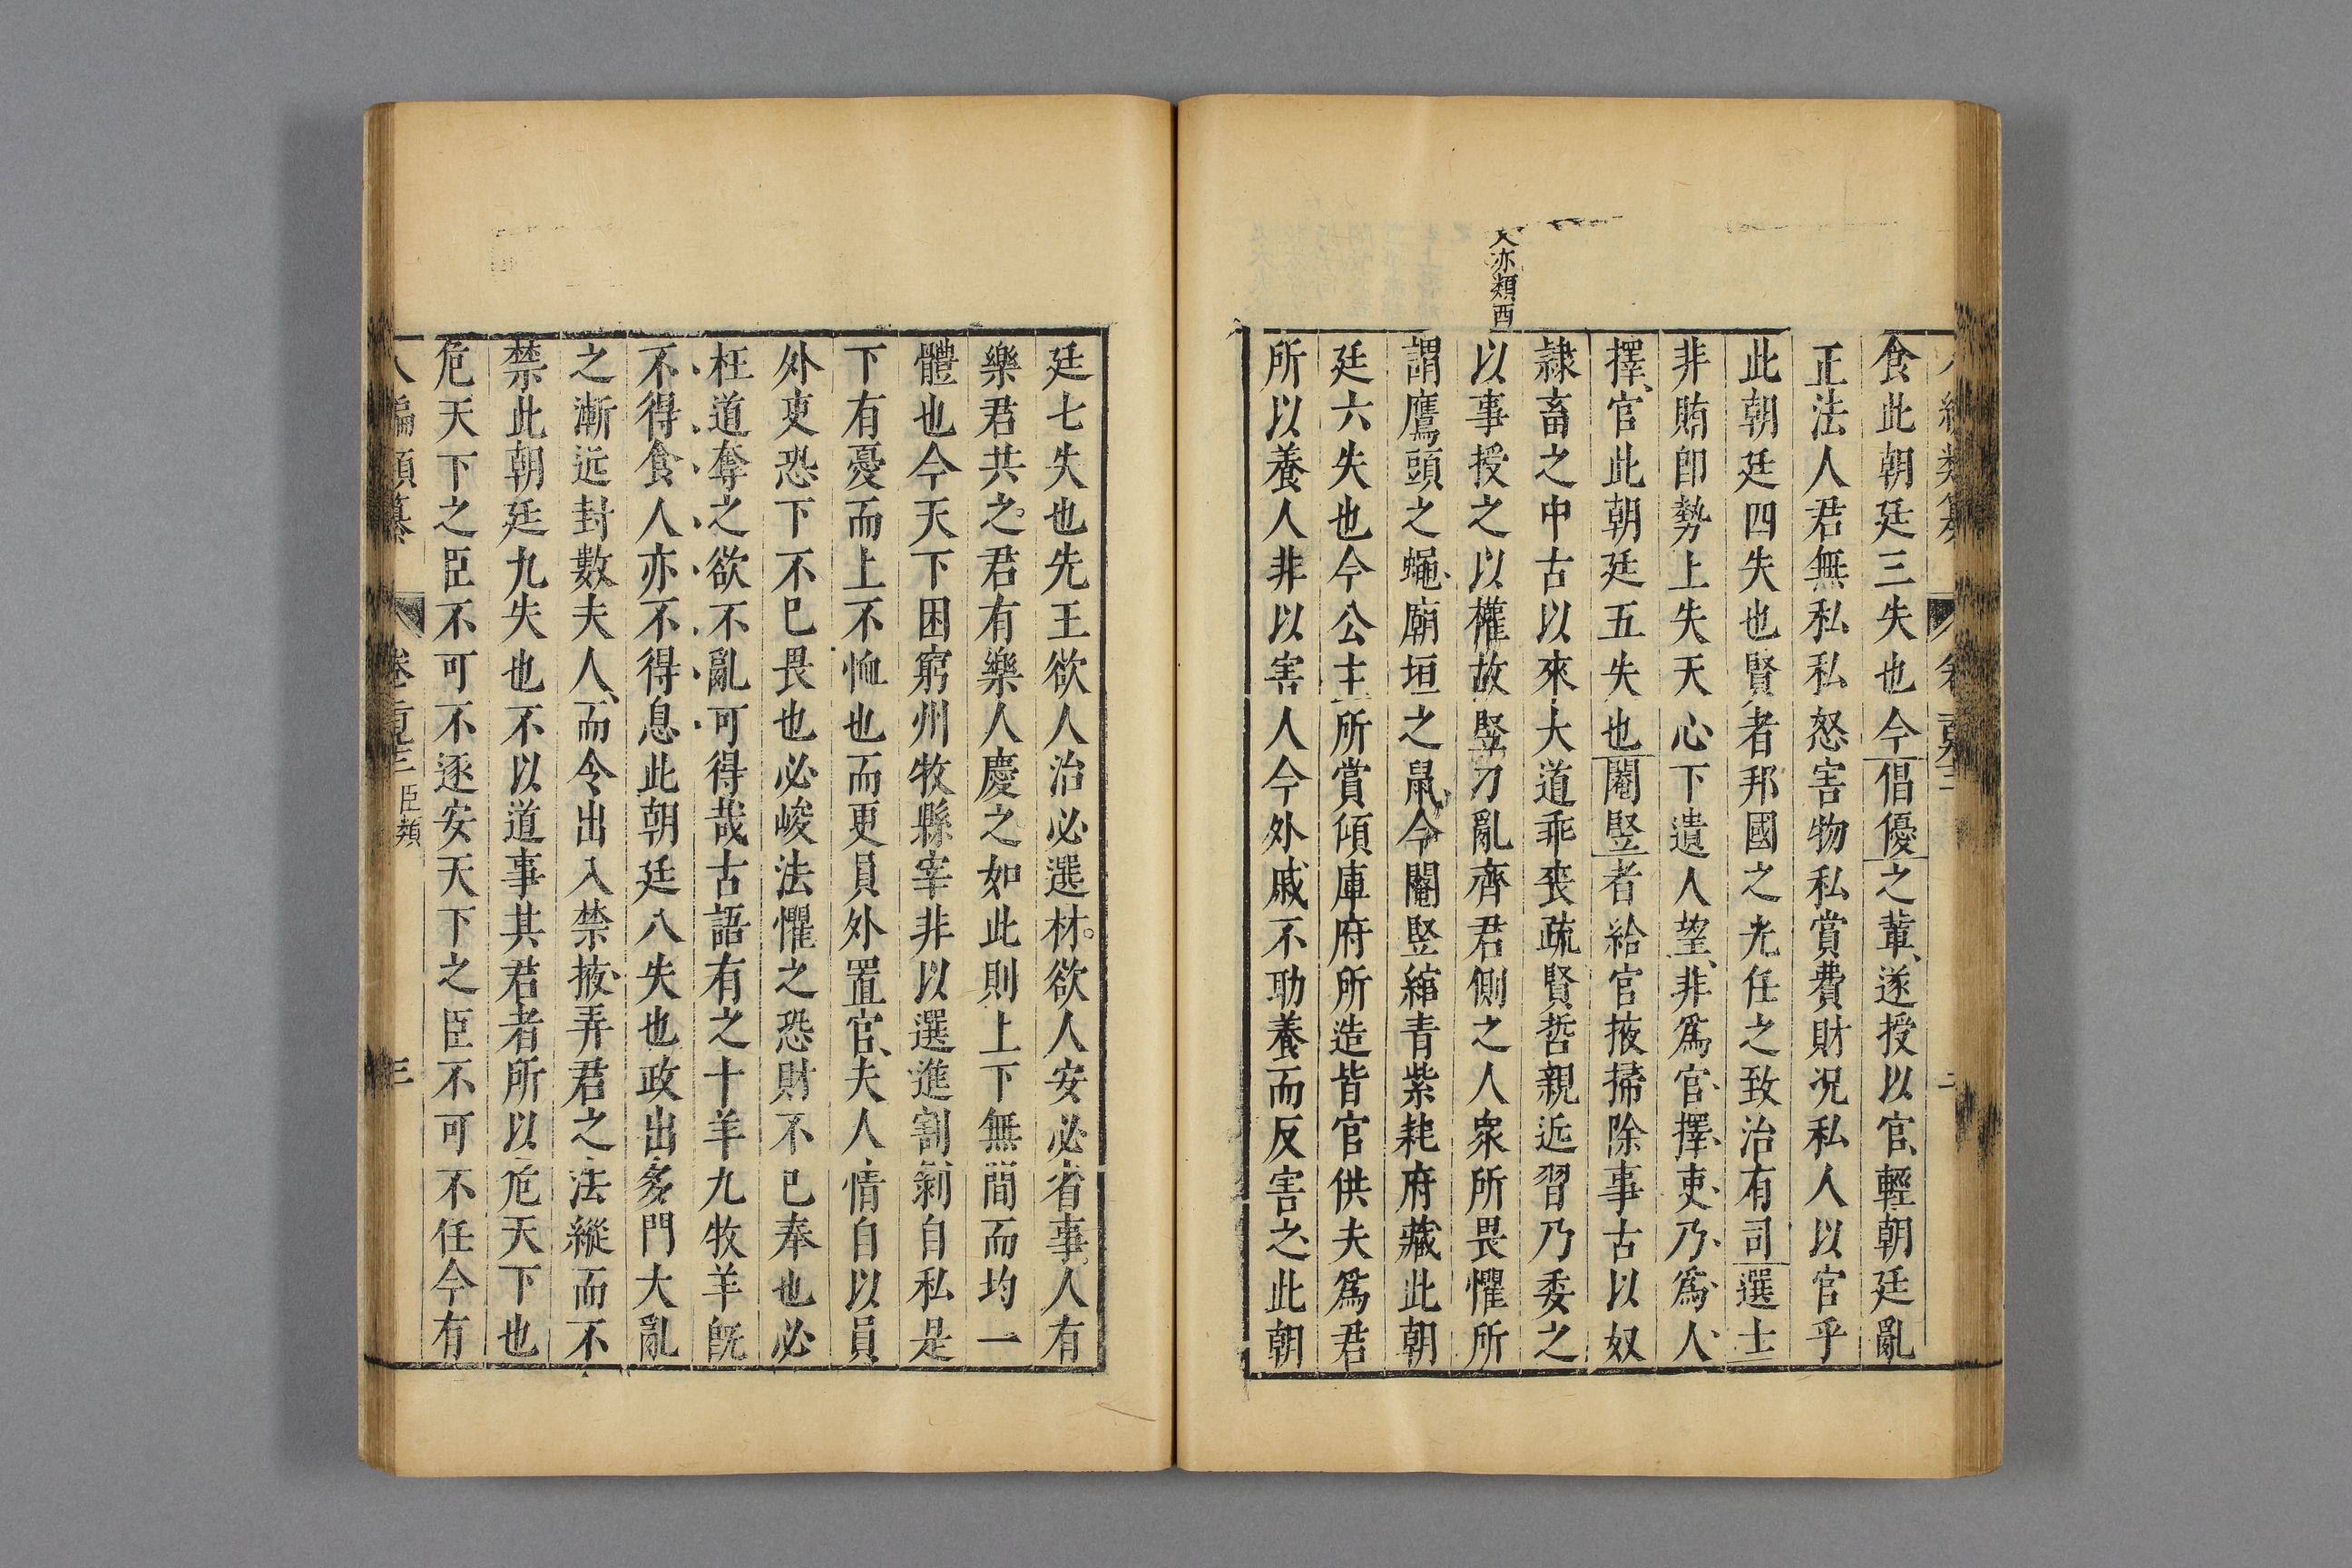 食此朝廷三失也今倡優之輩遂授以官輕朝廷亂
正法人君無私私怒害物私賞費財况私人以官乎
此朝廷四失也賢者邦國之光任之致治有司選士
非賄即勢上失天心下遺人望非爲官擇吏乃爲人
擇官此朝廷五失也閹竪者給官掖掃除事古以奴
隷畜之中古以來大道乖喪疏賢哲親近習乃委之
以事授之以權故竪刁亂齊君側之人衆所畏懼所
謂鷹頭之蠅廟垣之鼠今閹竪綰青紫耗府藏此朝
廷六失也今公主所賞傾庫府所造皆官供夫爲君
所以養人非以害人今外戚不助養而反害之此朝
亦類酉
廷七失也先王欲人治必選材欲人安必省事人有
樂君共之君有樂人慶之如此則上下無間而均一
體也今天下困窮州牧縣宰非以選進割剥自私是
下有憂而上不恤也而更員外置官夫人情自以員
外吏恐下不已畏也必峻法懼之恐財不已奉也必
枉道奪之欲不亂可得哉古語有之十羊九牧羊旣
不得食人亦不得息此朝廷八失也政出多門大亂
之漸近封數夫人而令出入禁掖弄君之法縱而不
禁此朝廷九失也不以道事其君者所以危天下也
危天下之臣不可不逐安天下之臣不可不任今有
編類纂 卷 臣類 三